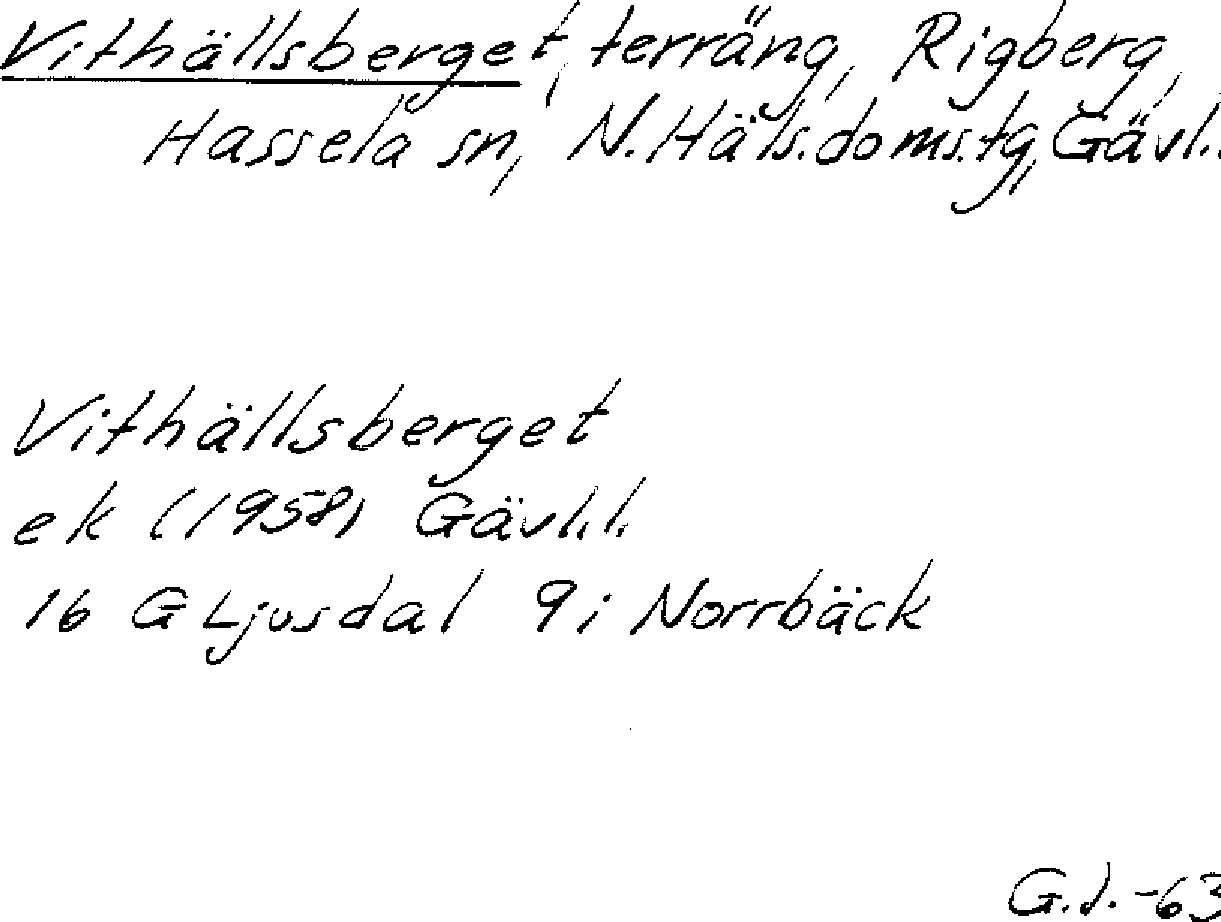 Vithällsberget, terräng, Rigberg,
Hassela sn, N. Häls. doms.tg, Gävl.
Vithällsberget
ek (1958) Gävl.l.
16 G Ljusdal 9i Norrbäck
G.J. -63